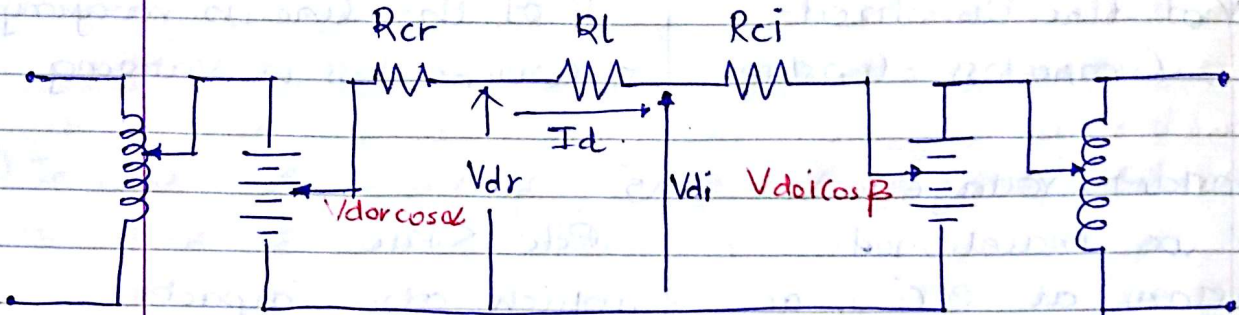 Rcr Rl Rci
Id.
Vdr Vdi Vdoicosβ
Vdorcosα